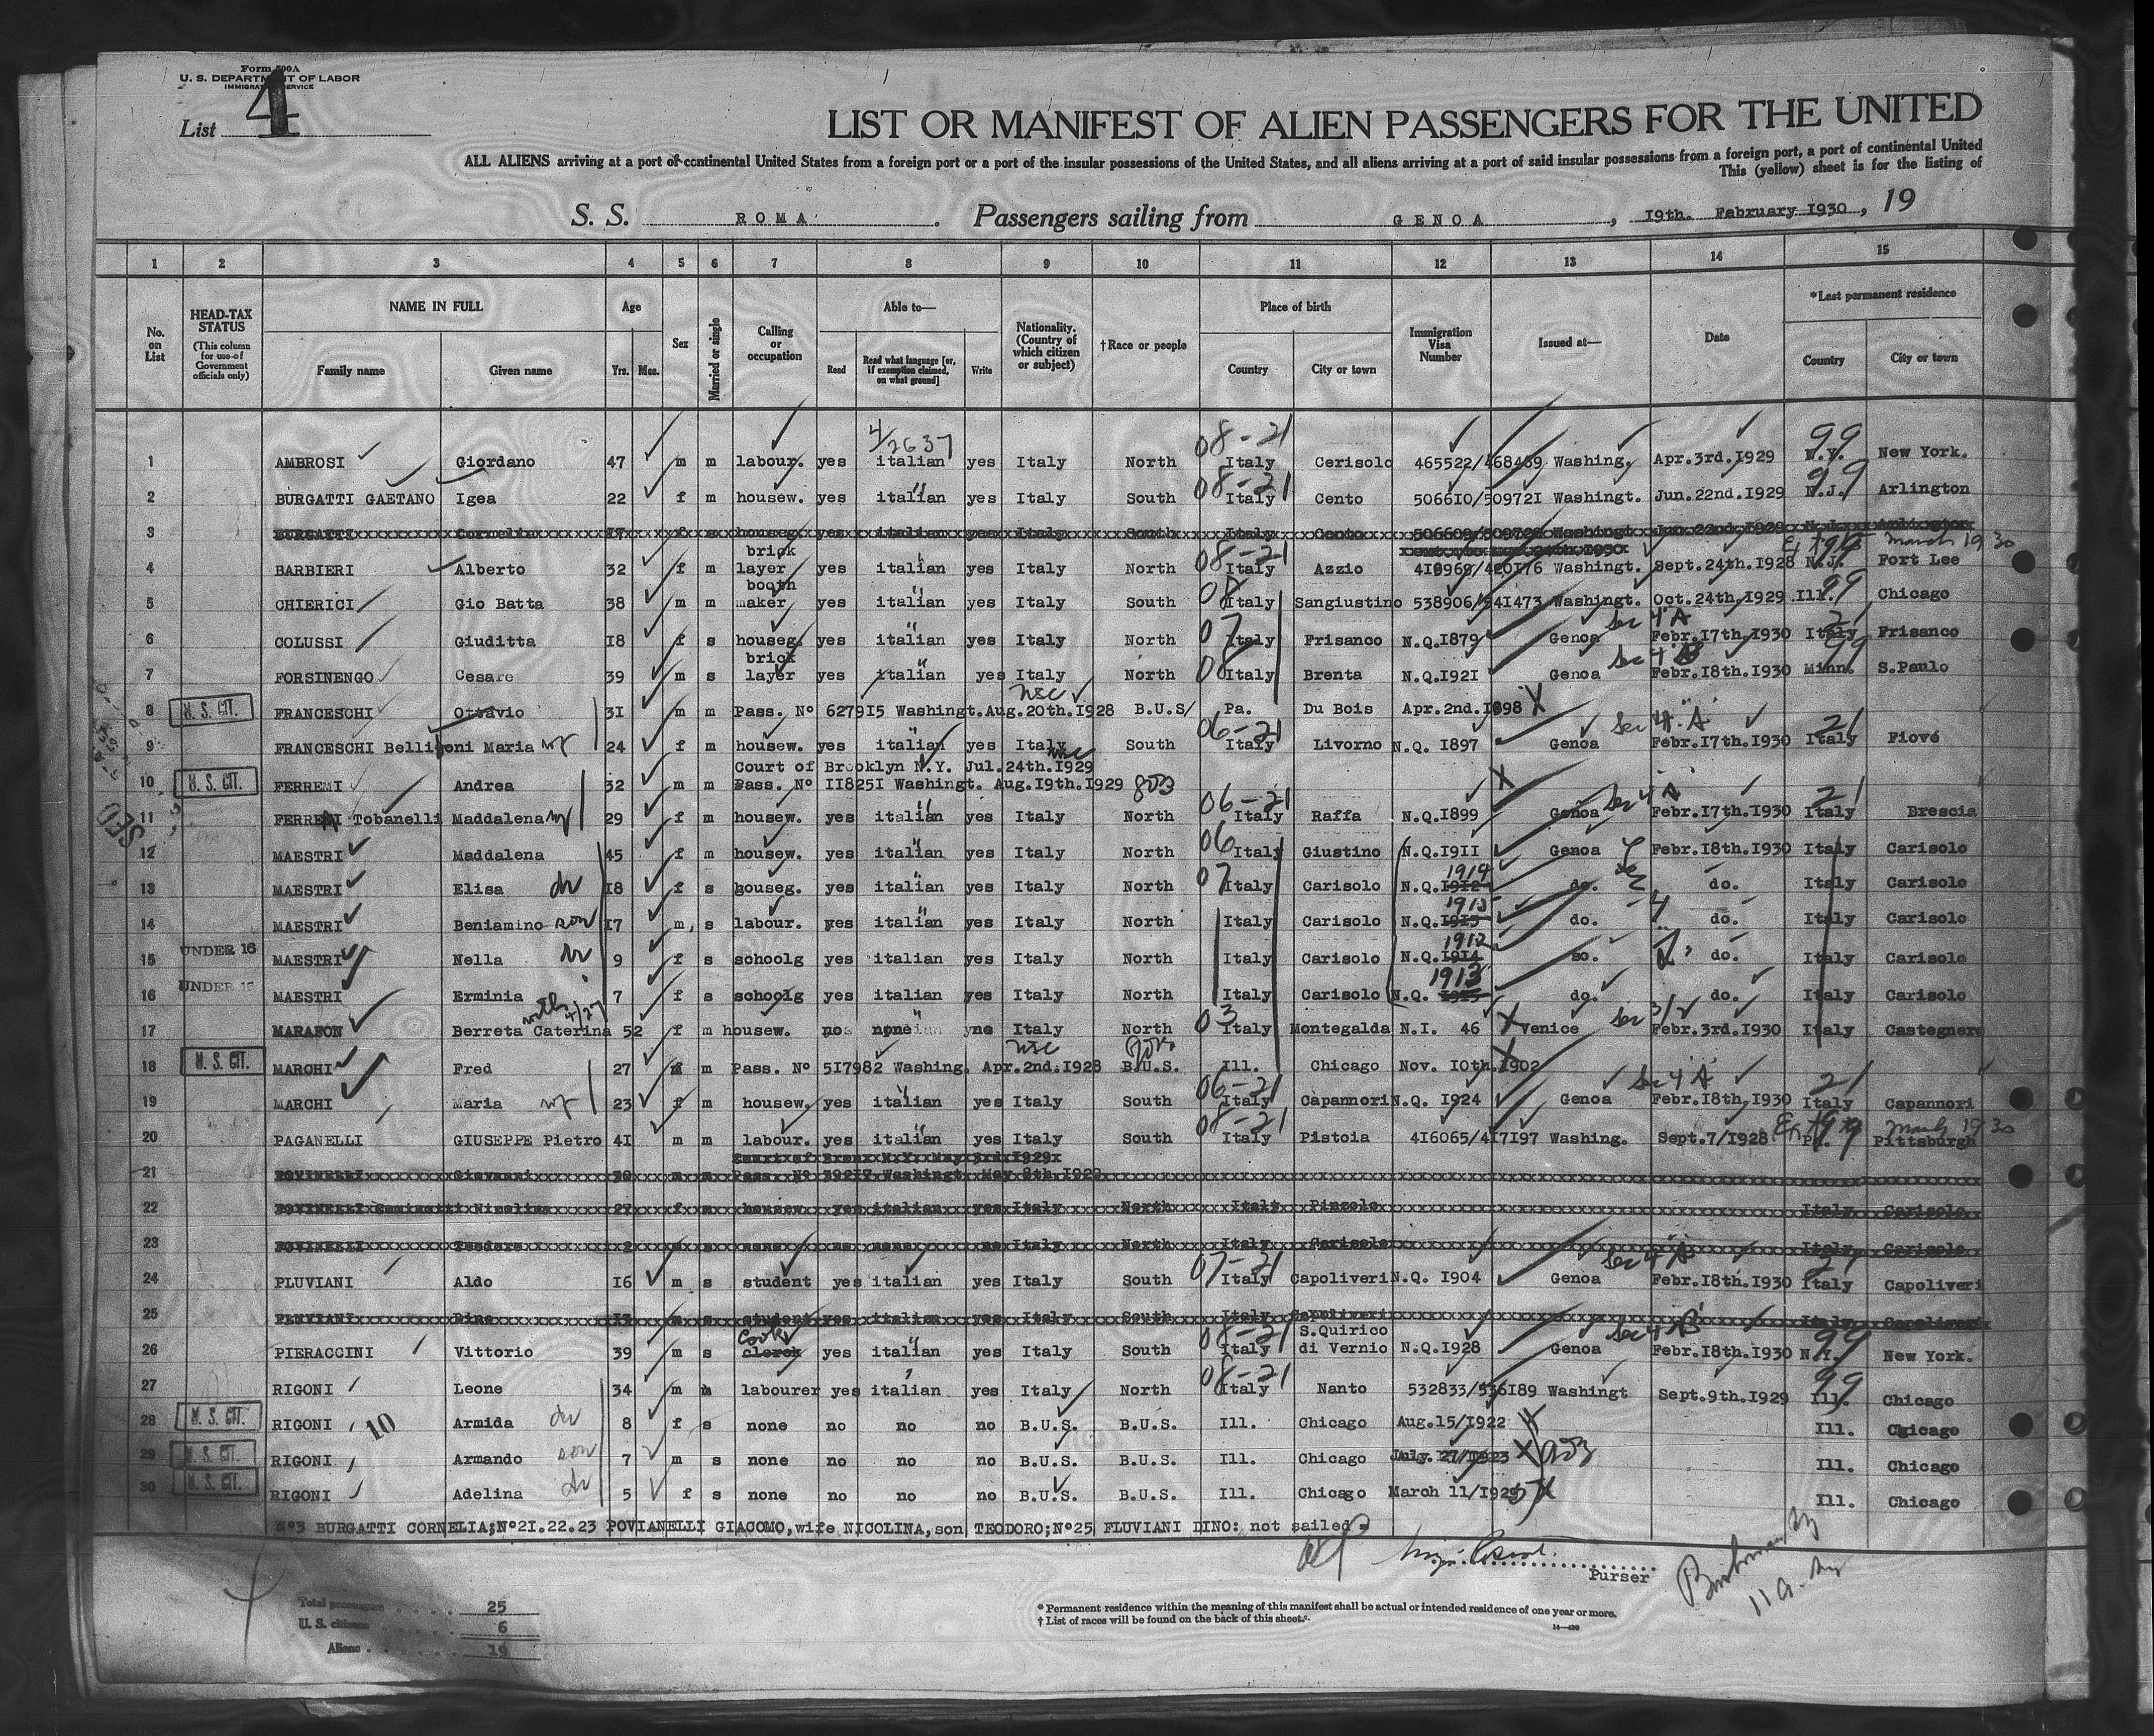 Form 500A
U. S. DEPARTMENT OF LABOR
IMMIGRATION SERVICE
List 4
LIST OR MANIFEST OF ALIEN PASSENGERS FOR THE UNITED
ALL ALIENS arriving at a port of continental United States from a foreign port or a port of the insular possessions of the United States, and all aliens arriving at a port of said insular possessions from a foreign port, a port of continental United
This (yellow) sheet is for the listing of
S. S. ROMA. Passengers sailing from GENOA, 19th. February 1930, 19
1 2 3 4 5 6 7 8 9 10 11 12 13 14 15
No. on List
HEAD-TAX STATUS (This column for use of Government officials only)
NAME IN FULL Family name Given name
Age Yrs. Mos.
Sex
Married or single
Calling or occupation
Able to— Read Read what language [or, if exemption claimed, on what ground] Write
Nationality. (Country of which citizen or subject)
†Race or people
Place of birth Country City or town
Immigration Visa Number
Issued at—
Date
*Last permanent residence Country City or town
4/2637 08-21 99
1 AMBROSI Giordano 47 m m labour. yes italian yes Italy North Italy Cerisolo 465522/468469 Washing. Apr.3rd.I929 N.Y. New York.
08-21 99
2 BURGATTI GAETANO Igea 22 f m housew. yes italian yes Italy South Italy Cento 5066I0/50972I Washingt. Jun.22nd.I929 N.J. Arlington
3 BURGATTI Cornelia I7 f s houseg. yes italian yes Italy South Italy Cento Washingt. Jun.22nd.I929
08-21 99 March 1930
4 BARBIERI Alberto 32 f m brick layer yes italian yes Italy North Italy Azzio 4I8969/420I76 Washingt. Sept.24th.I928 N.J. Fort Lee
08 99
5 CHIERICI Gio Batta 38 m m booth maker yes italian yes Italy South Italy Sangiustino 538906/54I473 Washingt. Oct.24th.I929 Ill. Chicago
07 Sec 4 A 21
6 COLUSSI Giuditta I8 f s houseg. yes italian yes Italy North Italy Frisanco N.Q.I879 Genoa Febr.I7th.I930 Italy Frisanco
08 Sec 4 B 99
7 FORSINENGO Cesare 39 m s brick layer yes italian yes Italy North Italy Brenta N.Q.I92I Genoa Febr.I8th.I930 Minn. S.Paulo
8 U. S. CIT. FRANCESCHI Ottavio 3I m m Pass. Nº 6279I5 Washingt.Aug.20th.I928 B.U.S/ Pa. Du Bois Apr.2nd.I898 X
06-21 Sec 4 A 21
9 FRANCESCHI Belligoni Maria wf 24 f m housew. yes italian yes Italy South Italy Livorno N.Q. I897 Genoa Febr.I7th.I930 Italy Piové
Court of Brooklyn N.Y. Jul.24th.I929
10 U. S. CIT. FERREMI Andrea 32 m m Pass. Nº II825I Washingt. Aug.I9th.I929 X
06-21 Sec 4 A 21
11 FERREMI Tobanelli Maddalena wf 29 f m housew. yes italian yes Italy North Italy Raffa N.Q.I899 Genoa Febr.I7th.I930 Italy Brescia
06
12 MAESTRI Maddalena 45 f m housew. yes italian yes Italy North Italy Giustino N.Q.I9II Genoa Febr.I8th.I930 Italy Carisolo
07 1914
13 MAESTRI Elisa dr I8 f s houseg. yes italian yes Italy North Italy Carisolo N.Q.I9I2 do. do. Italy Carisolo
1915
14 MAESTRI Beniamino son I7 m. s labour. yes italian yes Italy North Italy Carisolo N.Q.I9I3 do. do. Italy Carisolo
1912
15 UNDER 16 MAESTRI Nella dr 9 f s schoolg yes italian yes Italy North Italy Carisolo N.Q.I9I4 do. do. Italy Carisolo
1913
16 UNDER 16 MAESTRI Erminia 7 f s schoolg yes italian yes Italy North Italy Carisolo N.Q. I9I5 do. do. Italy Carisolo
03 Sec 3/2
17 MARAFON Berreta Caterina 52 f m housew. no none no Italy North Italy Montegalda N.I. 46 X Venice Febr.3rd.I930 Italy Castegnero
18 U. S. CIT. MARCHI Fred 27 m m Pass. Nº 5I7982 Washing. Apr.2nd.I928 B.U.S. Ill. Chicago Nov. I0th.I902 X
06-21 Sec 4 A 21
19 MARCHI Maria wf 23 f m housew. yes italian yes Italy South Italy Capannori N.Q. I924 Genoa Febr.I8th.I930 Italy Capannori
08-21 99 March 1930
20 PAGANELLI GIUSEPPE Pietro 4I m m labour. yes italian yes Italy South Italy Pistoia 4I6065/4I7I97 Washing. Sept.7/I928 Pa. Pittsburgh
Court of Bronx N.Y. May 3rd.I929
21 POVINELLI Giovanni 30 m m Pass. Nº 392I7 Washingt. May 8th.I929
22 POVINELLI Nicolina 27 f m housew yes italian yes Italy North Italy Pinzolo Italy Carisolo
23 POVINELLI Teodoro 2 m s none no none no Italy North Italy Carisolo Italy Carisolo
07-21 Sec 4 A 21
24 PLUVIANI Aldo I6 m s student yes italian yes Italy South Italy Capoliveri N.Q. I904 Genoa Febr.I8th.I930 Italy Capoliveri
25 PLUVIANI Dino m s student yes italian yes Italy South Italy Capoliveri Italy Capoliveri
cook 08-21 Sec 4 B 99
26 PIERACCINI Vittorio 39 m s clerck yes italian yes Italy South Italy S.Quirico di Vernio N.Q.I928 Genoa Febr.I8th.I930 N.Y. New York.
08-21 99
27 RIGONI Leone 34 m m labourer yes italian yes Italy North Italy Nanto 532833/536I89 Washingt Sept.9th.I929 Ill. Chicago
28 U. S. CIT. RIGONI 10 Armida dr 8 f s none no no no B.U.S. B.U.S. Ill. Chicago Aug.I5/I922 X Ill. Chicago
29 U. S. CIT. RIGONI Armando son 7 m s none no no no B.U.S. B.U.S. Ill. Chicago July. 27/I923 X Ill. Chicago
30 U. S. CIT. RIGONI Adelina dr 5 f s none no no no B.U.S. B.U.S. Ill. Chicago March II/I925 X Ill. Chicago
Nº3 BURGATTI CORNELIA;Nº2I.22.23 POVIANELLI GIACOMO,wife NICOLINA,son TEODORO;Nº25 FLUVIANI DINO: not sailed
Purser
Total passengers 25
U. S. citizens 6
Aliens 19
* Permanent residence within the meaning of this manifest shall be actual or intended residence of one year or more.
† List of races will be found on the back of this sheet.